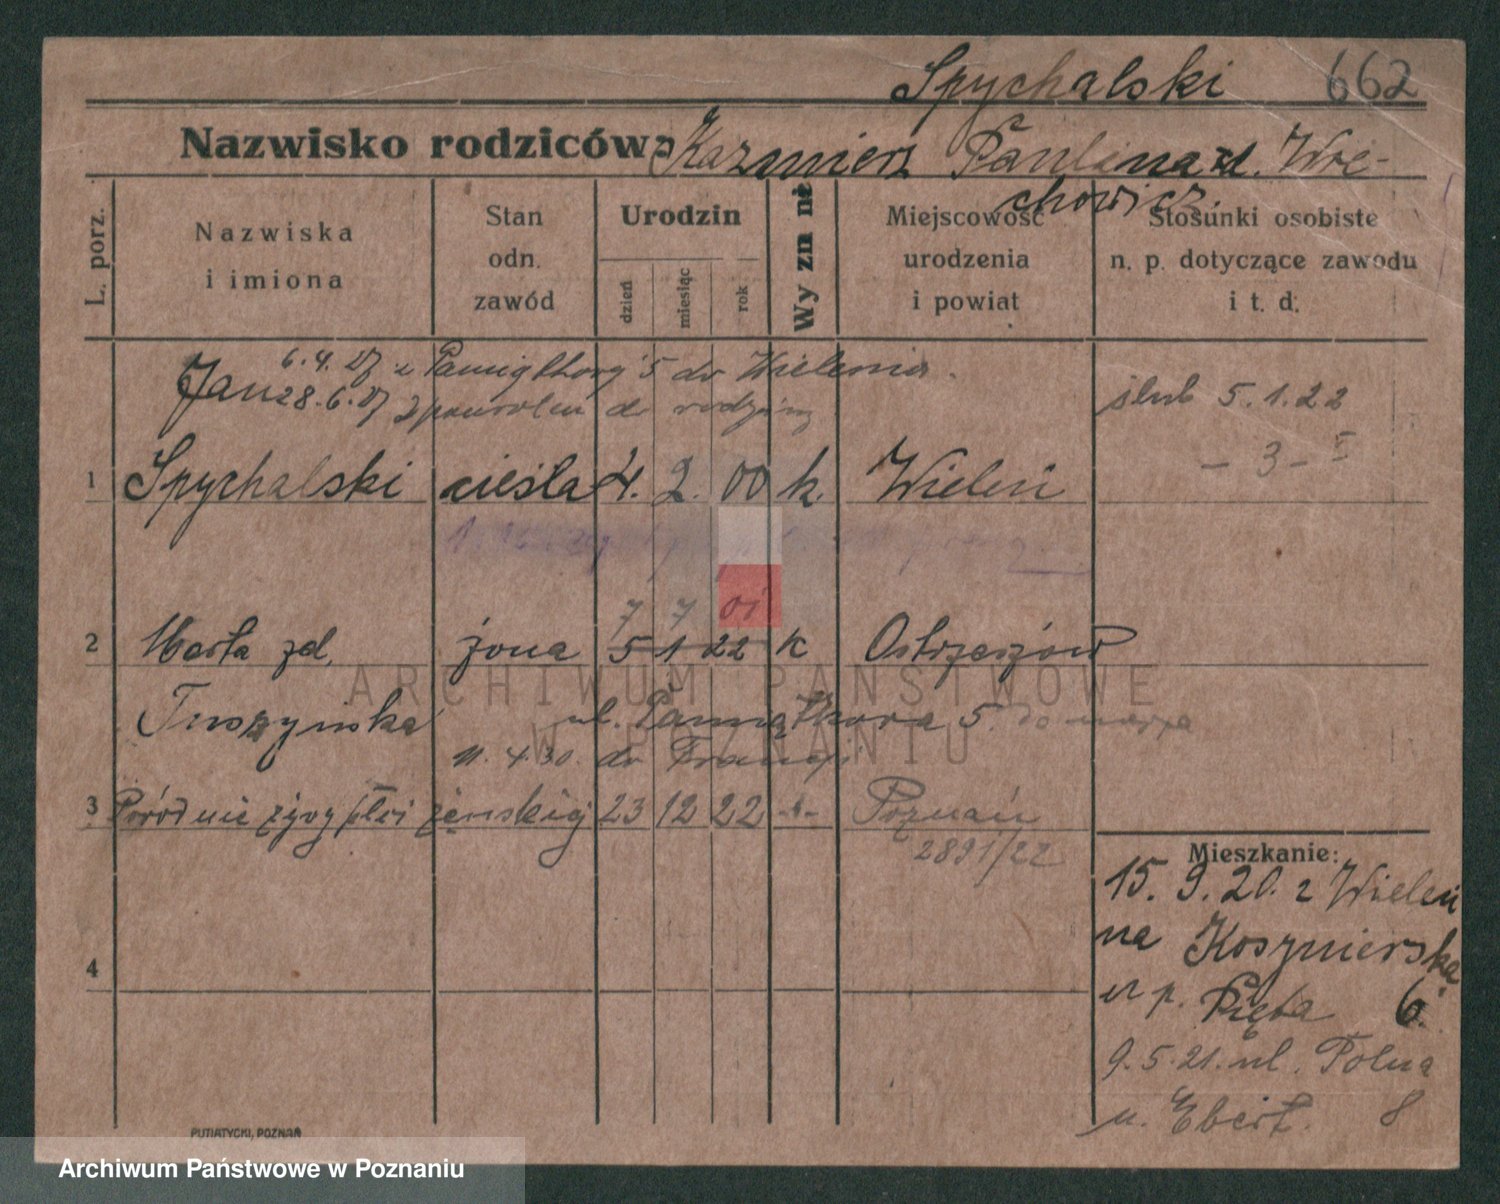 Spychalski 662
Nazwisko rodziców: Kazmierz Paulina zd. Wre-
chowicz.
L. porz.
Nazwiska
i imiona
Stan
odn.
zawód
Urodzin
dzień
miesiąc
rok
Wyzn nł
Miejscowość
urodzenia
i powiat
Stosunki osobiste
n. p. dotyczące zawodu
i t. d.
6.4.27 z Pamiątkowej 5 do Wielenia.
Jan 28.6.27 powrotem do rodziny
ślub 5.1.22
- 3 - V
1 Spychalski cieśla 4. 2. 00 k. Wieleń
7 7 01
2 Marta zd. żona 5 1 22 k Ostrzeszów
Tuszyńska ul. Pamiątkowa 5. do męża
11.4.30. do Francji
3 Poród nieżywy płci żeńskiej 23 12 22 -"- Poznań
2891/22
Mieszkanie:
15. 9. 20. z Wieleń
na Kosznierska
u p. Pięta 6.
9.5.21. ul. Polna
u. Ebert. 8
4
PUTIATYCKI, POZNAŃ
ARCHIWUM PAŃSTWOWE
W POZNANIU
Archiwum Państwowe w Poznaniu